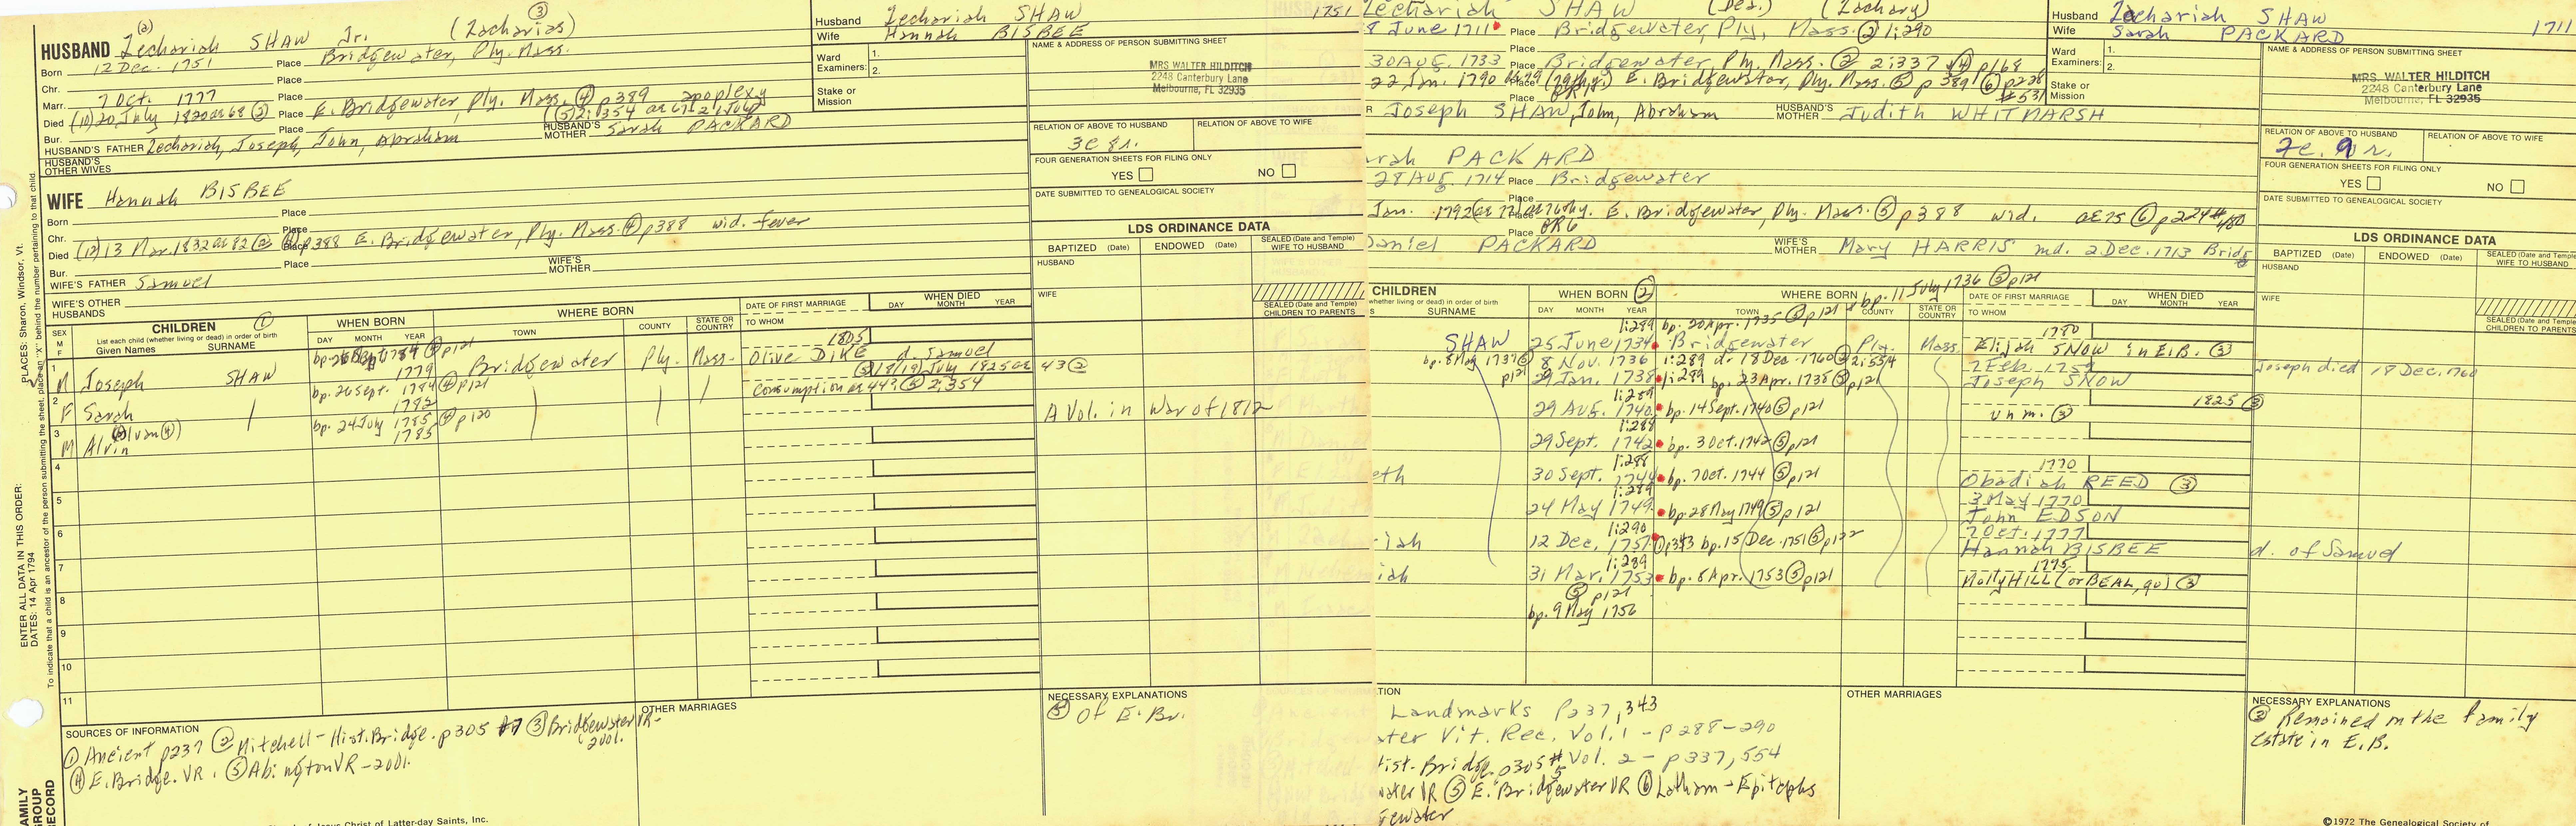 (a) ③
HUSBAND Zechariah SHAW Jr. (Zacharias)
Born 12 Dec. 1751 Place Bridgewater, Ply. Mass.
Chr. Place
Marr. 7 Oct. 1777 Place
Died (10) 20, July 1820 ae 68 ② Place E. Bridgewater Ply. Mass. ④ p389 apoplexy
(⑤ 2:354 ae 67 21 July
Bur. Place
HUSBAND'S FATHER Zechariah, Joseph, John, Abraham HUSBAND'S MOTHER Sarah PACKARD
HUSBAND'S OTHER WIVES
WIFE Hannah BISBEE
Born Place
Chr. Place
Died (12) 13 Mar. 1832 ae 82 ② p388 E. Bridgewater, Ply. Mass. ④ p388 wid. fever
Bur. Place
WIFE'S FATHER Samuel WIFE'S MOTHER
WIFE'S OTHER HUSBANDS
SEX M F
CHILDREN ①
List each child (whether living or dead) in order of birth
Given Names SURNAME
WHEN BORN
DAY MONTH YEAR
WHERE BORN
TOWN COUNTY STATE OR COUNTRY
DATE OF FIRST MARRIAGE
TO WHOM
WHEN DIED
DAY MONTH YEAR
1805
1 M Joseph SHAW 1779 Bridgewater Ply. Mass. Olive DIKE d. Samuel
18/19 July 1825 ae 43 ②
bp. 26 Sept. 1784 ④ p121 Consumption ae 44? ⑤ 2:354
2 F Sarah 1782
bp. 24 July 1785 ④ p120
3 M Alvin (Alvan ④) 1785 A Vol. in War of 1812
4
5
6
7
8
9
10
11
SOURCES OF INFORMATION
① Ancient p237 ② Mitchell-Hist. Bridge. p305 #7 ③ Bridgewater VR-2001.
④ E. Bridge. VR. ⑤ Abington VR-2001.
OTHER MARRIAGES
NECESSARY EXPLANATIONS
③ Of E. Br.
FAMILY GROUP RECORD
ENTER ALL DATA IN THIS ORDER:
DATES: 14 Apr 1794
PLACES: Sharon, Windsor, Vt.
To indicate that a child is an ancestor of the person submitting the sheet, place an "X" behind the number pertaining to that child.
of Jesus Christ of Latter-day Saints, Inc.
Husband Zechariah SHAW 1751
Wife Hannah BISBEE
Ward Examiners: 1.
2.
Stake or Mission
NAME & ADDRESS OF PERSON SUBMITTING SHEET
MRS WALTER HILDITCH
2248 Canterbury Lane
Melbourne, FL 32935
RELATION OF ABOVE TO HUSBAND RELATION OF ABOVE TO WIFE
3c 8r.
FOUR GENERATION SHEETS FOR FILING ONLY
YES NO
DATE SUBMITTED TO GENEALOGICAL SOCIETY
LDS ORDINANCE DATA
BAPTIZED (Date) ENDOWED (Date) SEALED (Date and Temple) WIFE TO HUSBAND
HUSBAND
WIFE
SEALED (Date and Temple) CHILDREN TO PARENTS
Zechariah SHAW (Dea.) (Zachary)
8 June 1711 Place Bridgewater, Ply, Mass. ② 1:290
Place
30 AUG. 1733 Place Bridgewater, Ply. Mass. ② 2:337 ④ p168
22 Jan. 1790 ae 79 (79thy.) Place E. Bridgewater, Ply. Mass. ⑤ p389 ⑥ p228 #531
Place
R Joseph SHAW, John, Abraham HUSBAND'S MOTHER Judith WHITMARSH
rah PACKARD
28 AUG. 1714 Place Bridgewater
Place
Jan. 1792 E. Bridgewater, Ply. Mass. ⑤ p388 wid. ae 75 ⑥ p224
Place
Daniel PACKARD WIFE'S MOTHER Mary HARRIS md. 2 Dec. 1713 Bridg
CHILDREN
whether living or dead) in order of birth
SURNAME
WHEN BORN ②
DAY MONTH YEAR
WHERE BORN
bp. 11 July 1736 ⑤ p121
TOWN COUNTY STATE OR COUNTRY
DATE OF FIRST MARRIAGE
TO WHOM
WHEN DIED
DAY MONTH YEAR
1:289 bp. 20 Apr. 1735 ⑤ p121 1780
SHAW 25 June 1734 Bridgewater Ply. Mass. Elijah SNOW in E.B. ③
bp. 8 May 1737 ⑤ p121 8 Nov. 1736 1:289 d. 18 Dec. 1760 ② 2:554 2 Feb. 1757
29 Jan. 1738 1:289 bp. 23 Apr. 1738 ⑤ p121 Joseph SNOW Joseph died 18 Dec. 1760
1:289 1825 ③
29 AUG. 1740 bp. 14 Sept. 1740 ⑤ p121 unm. ③
1:288
29 Sept. 1742 bp. 3 Oct. 1742 ⑤ p121
1:288 1770
eth 30 Sept. 1744 bp. 7 Oct. 1744 ⑤ p121 Obadiah REED ③
1:289 3 May 1770
24 May 1749 bp. 28 May 1749 ⑤ p121 John EDSON
1:290 7 Oct. 1777
iah 12 Dec. 1751 ① p343 bp. 15 Dec. 1751 ⑤ p122 Hannah BISBEE d. of Samuel
1:289 1775
iah 31 Mar. 1753 bp. 8 Apr. 1753 ⑤ p121 Molly HILL (or BEAL, qo) ③
⑤ p121
bp. 9 May 1756
TION
Landmarks P237, 343
ter Vit. Rec. Vol. 1 - p288-290
Hist. Bridge. p305 #5 Vol. 2 - p337, 554
water VR ⑤ E. Bridgewater VR ⑥ Latham - Epitaphs
gewater
OTHER MARRIAGES
NECESSARY EXPLANATIONS
③ Remained on the family
estate in E.B.
©1972 The Genealogical Society of
Husband Zechariah SHAW 1711
Wife Sarah PACKARD
Ward Examiners: 1.
2.
Stake or Mission
NAME & ADDRESS OF PERSON SUBMITTING SHEET
MRS. WALTER HILDITCH
2248 Canterbury Lane
Melbourne, FL 32935
RELATION OF ABOVE TO HUSBAND RELATION OF ABOVE TO WIFE
2c. 9r.
FOUR GENERATION SHEETS FOR FILING ONLY
YES NO
DATE SUBMITTED TO GENEALOGICAL SOCIETY
LDS ORDINANCE DATA
BAPTIZED (Date) ENDOWED (Date) SEALED (Date and Temple) WIFE TO HUSBAND
HUSBAND
WIFE
SEALED (Date and Temple) CHILDREN TO PARENTS